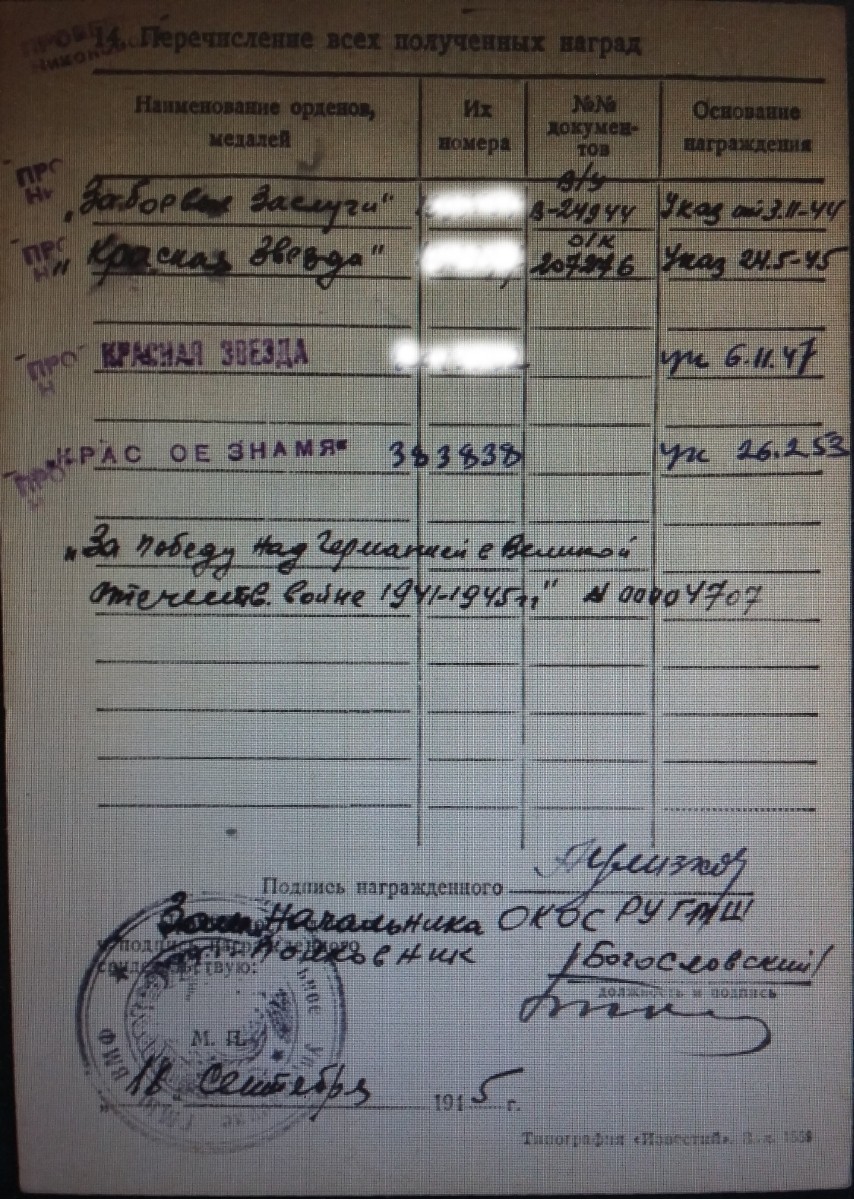 14. Перечисление всех полученных наград
Наименование орденов, медалей
Их номера
№№ документов
Основание награждения
„За боевые заслуги“ в/у В-24944 Указ от 3.11-44
„Красная Звезда“ о/к 207276 Указ 24.5-45
КРАСНАЯ ЗВЕЗДА ук 6.11.47
„КРАС ОЕ ЗНАМЯ“ 383838 ук 26.2.53
„За победу над Германией в Великой
Отечеств. войне 1941-1945гг“ N 0004707
Подпись награжденного
Зам Начальника ОКОС РУ ГМШ
подпись награжденного
Полковник /Богословский/
свидетельствую:
должность и подпись
М. П.
18 сентября 1945 г.
Типография «Известий».